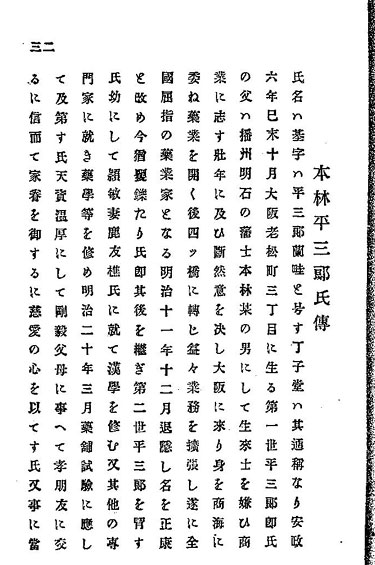 三二
本林平三郎氏傳
氏名ハ基字ハ平三郎蘭畦と号す丁子堂ハ其通稱なり安政
六年巳未十月大阪老松町三丁目に生る第一世平三郎即氏
の父ハ播州明石の藩士本林某の男にして生來士を嫌ひ商
業に志す壯年に及び斷然意を決し大阪に來り身を商海に
委ね藥業を開く後四ッ橋に轉じ益々業務を擴張し遂に全
國屈指の藥業家となる明治十一年十二月退隱し名を正康
と改め今猶矍鑠たり氏即其後を繼ぎ第二世平三郎を冒す
氏幼にして頴敏妻鹿友樵氏に就て漢學を修む又其他の專
門家に就き藥學等を修め明治二十年三月藥舖試驗に應し
て及第す氏天資温厚にして剛毅父母に事へて孝朋友に交
るに信而て家眷を御するに慈愛の心を以てす氏又事に當